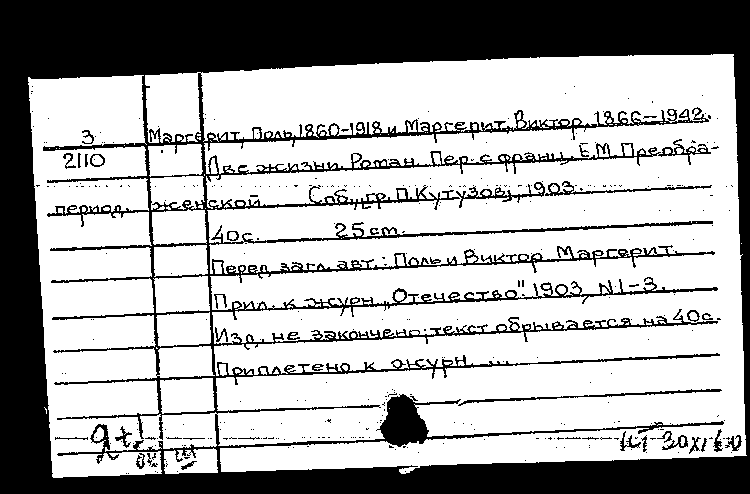 3 Маргерит, Поль, 1860-1918 и Маргерит, Виктор, 1866-1942.
2110 Две жизни. Роман. Пер. с франц. Е.М. Преобра-
период. женской. Спб., гр. П. Кутузов, 1903.
40с. 25 cm.
Перед загл. авт.: Поль и Виктор Маргерит.
Прил. к журн. „Отечество". 1903, N1-3.
Изд. не закончено; текст обрывается на 40с.
Приплетено к журн. ...